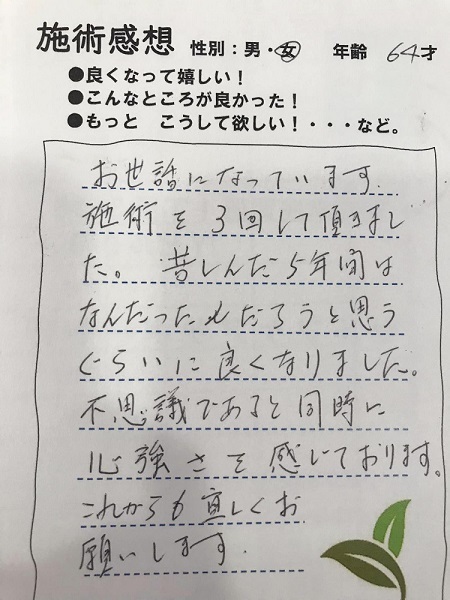 施術感想 性別：男・女 年齢 64才
●良くなって嬉しい！
●こんなところが良かった！
●もっと こうして欲しい！・・・など。
お世話になっています.
施術を3回して頂きまし
た。苦しんだ5年間は
なんだったんだろうと思う
くらいに良くなりました。
不思議であると同時に
心強さを感じております。
これからも宜しくお
願いします.